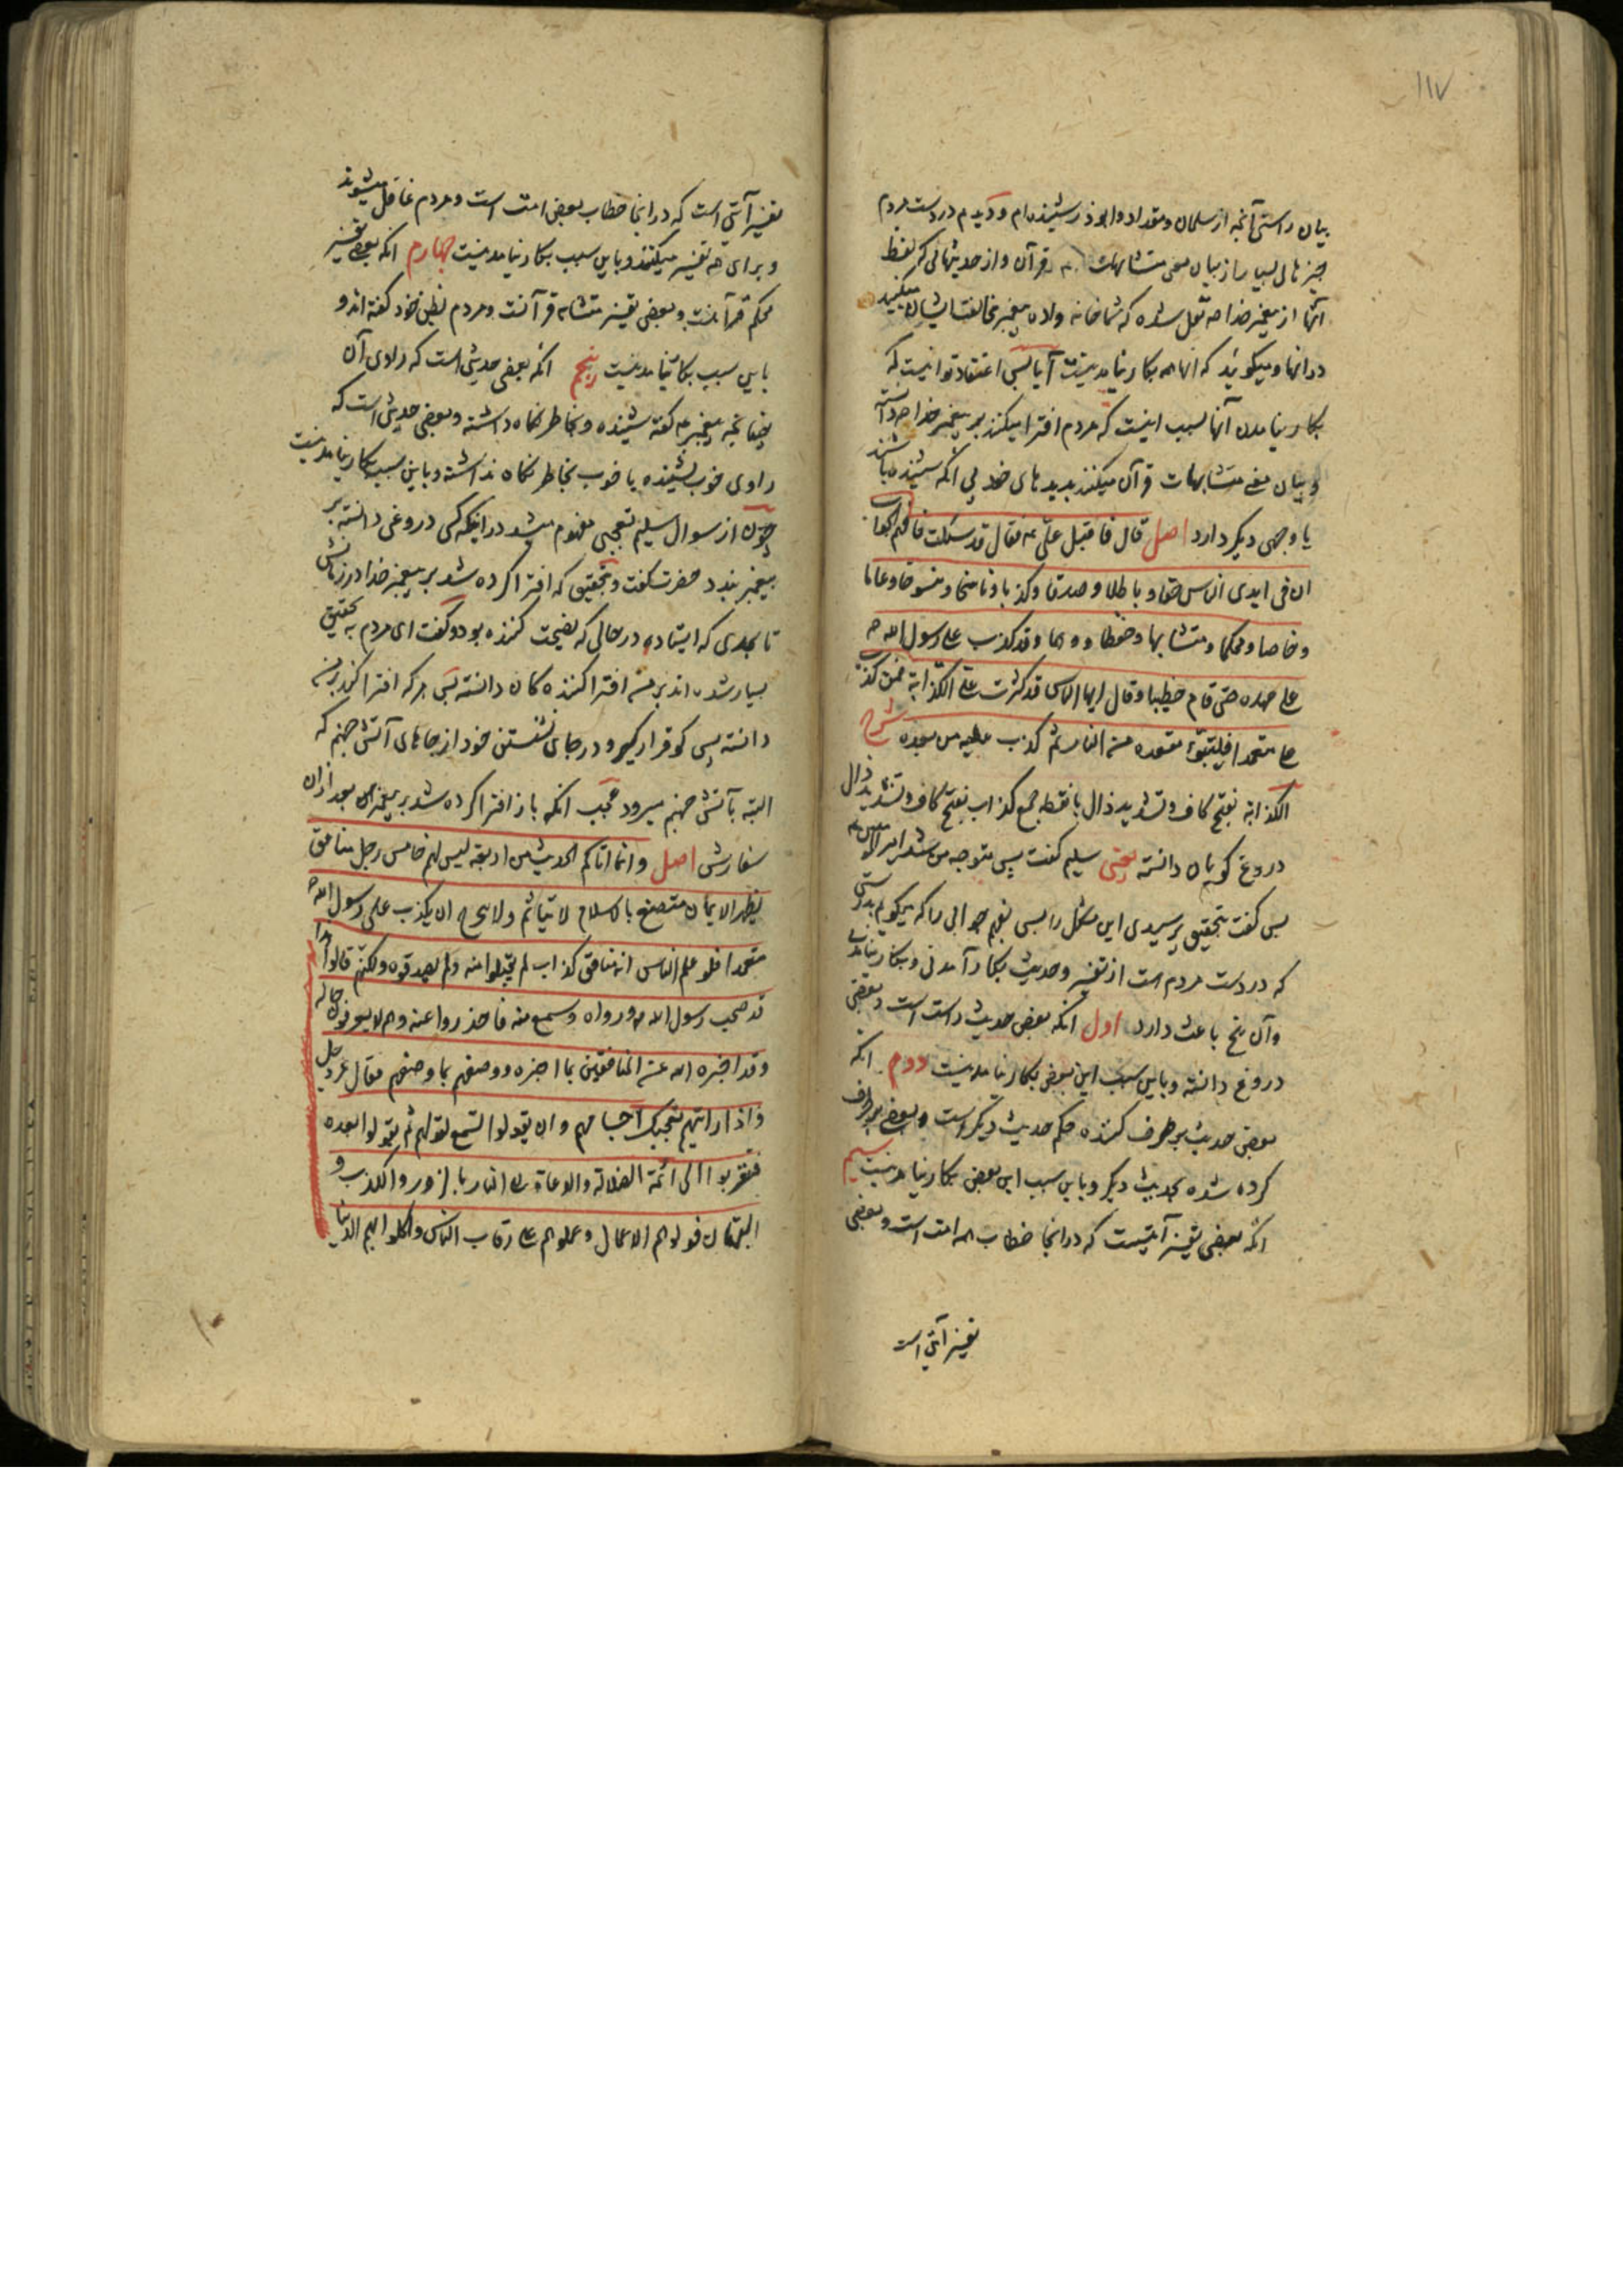 ۱۱۷
بیان راستی آنچه از سلمان و مقداد و ابوذر شنیده‌ام و دیدم در دست مردم
چیزهای بسیار از بیان معنی متشابهات قرآن و از حدیثهائی که لفظ
آنها از پیغمبر خدا ص نقل شده که شما خانه ولاده پیغمبر مخالفت ایشان میکنید
در آنها و میگوئید که آنها همه بکار نیامدنیست آیا پس اعتقاد تو اینست که
بکار نیامدن آنها بسبب اینست که مردم افترا میکنند بر پیغمبر خدا ص دانسته
و بیان معنی متشابهات قرآن میکنند بدیدهای خود بی آنکه شنیده باشند
یا وجهی دیگر دارد اصل قال فاقبل علی ع فقال قد سئلت فافهم الجواب
ان فی ایدی الناس حقا و باطلا و صدقا و کذبا و ناسخا و منسوخا و عاما
و خاصا و محکما و متشابها و حفظا و وهما و قد کذب علی رسول الله ص
علی عهده حتی قام خطیبا و قال ایها الناس قد کثرت علی الکذابة فمن کذب
علی متعمدا فلیتبوّء مقعده من النار ثم کذب علیه من بعده شرح
الکذابة بفتح کاف و تشدید ذال با نقطه جمع کذاب بفتح کاف و تشدید ذال
دروغ گویان دانسته یعنی سلیم گفت پس متوجه من شد امیر المؤمنین ع
پس گفت بتحقیق پرسیدی این مشکل را پس بفهم جوابی را که میگویم بدرستی
که در دست مردم است از تفسیر و حدیث بکار آمدنی و بکار نیامدنی
و آن پنج باعث دارد اول آنکه بعض حدیث راست است و بعضی
دروغ دانسته و باین سبب این بعض بکار نیامدنیست دوم آنکه
بعض حدیث برطرف کننده حکم حدیث دیگر است و بعضی برطرف
کرده شده بحدیث دیگر و باین سبب این بعض بکار نیامدنیست سیم
آنکه بعضی تفسیر آیتیست که در آنجا خطاب همه امت است و بعضی
تفسیر آیتی است
تفسیر آیتی است که در آنجا خطاب بعض امت است و مردم غافل میشوند
و برای همه تفسیر میکنند و باین سبب بکار نیامدنیست چهارم آنکه بعضی تفسیر
محکم قرآنست و بعضی تفسیر متشابه قرآنست و مردم بظن خود گفته اند و
باین سبب بکار نیامدنیست پنجم آنکه بعضی حدیثی است که راوی آن
چنانچه پیغمبر ص گفته شنیده و بخاطر نگاه داشته و بعضی حدیثی است که
راوی خوب نشنیده یا خوب بخاطر نگاه نداشته و باین سبب بکار نیامدنیست
چون از سوال سلیم تعجبی مفهوم میشد در اینکه کسی دروغی دانسته بر
پیغمبر بندد حضرت گفت و بتحقیق که افترا کرده شد بر پیغمبر خدا در زمانش
تا بحدی که ایستاد در حالی که نصیحت کننده بود و گفت ای مردم بتحقیق
بسیار شده اند بر من افترا کننده کان دانسته پس هر که افترا کند بر من
دانسته پس گو قرار گیرد در جای نشستن خود از جاهای آتش جهنم که
البته بآتش جهنم میرود عجب آنکه باز افترا کرده شد بر پیغمبر ص بعد از آن
سفارش اصل و انما اتاکم الحدیث من اربعة لیس لهم خامس رجل منافق
یظهر الایمان متصنع بالاسلام لا یتأثم ولا یتحرج ان یکذب علی رسول الله ص
متعمدا فلو علم الناس انه منافق کذاب لم یقبلوا منه ولم یصدقوه ولکنهم قالوا هذا
قد صحب رسول الله ص و رواه و سمع منه فاخذوا عنه وهم لا یعرفون حاله
وقد اخبره الله عن المنافقین بما اخبره و وصفهم بما وصفهم فقال عز وجل
و اذا رأیتهم تعجبک اجسامهم و ان یقولوا تسمع لقولهم ثم بقوا بعده
فتقربوا الی ائمة الضلالة و الدعاة الی النار بالزور و الکذب و
البهتان فولوهم الاعمال و حملوهم علی رقاب الناس و اکلوا بهم الدنیا